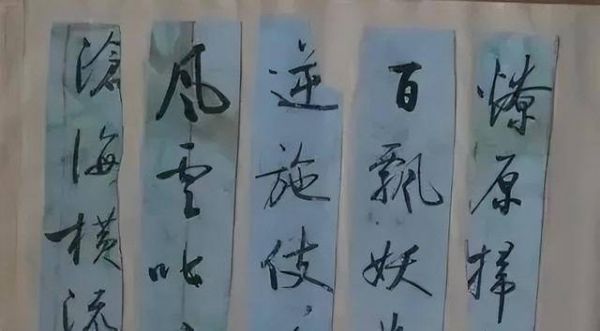 燎原掃
百飄妖
逆施伎
風雲叱
滄海橫流